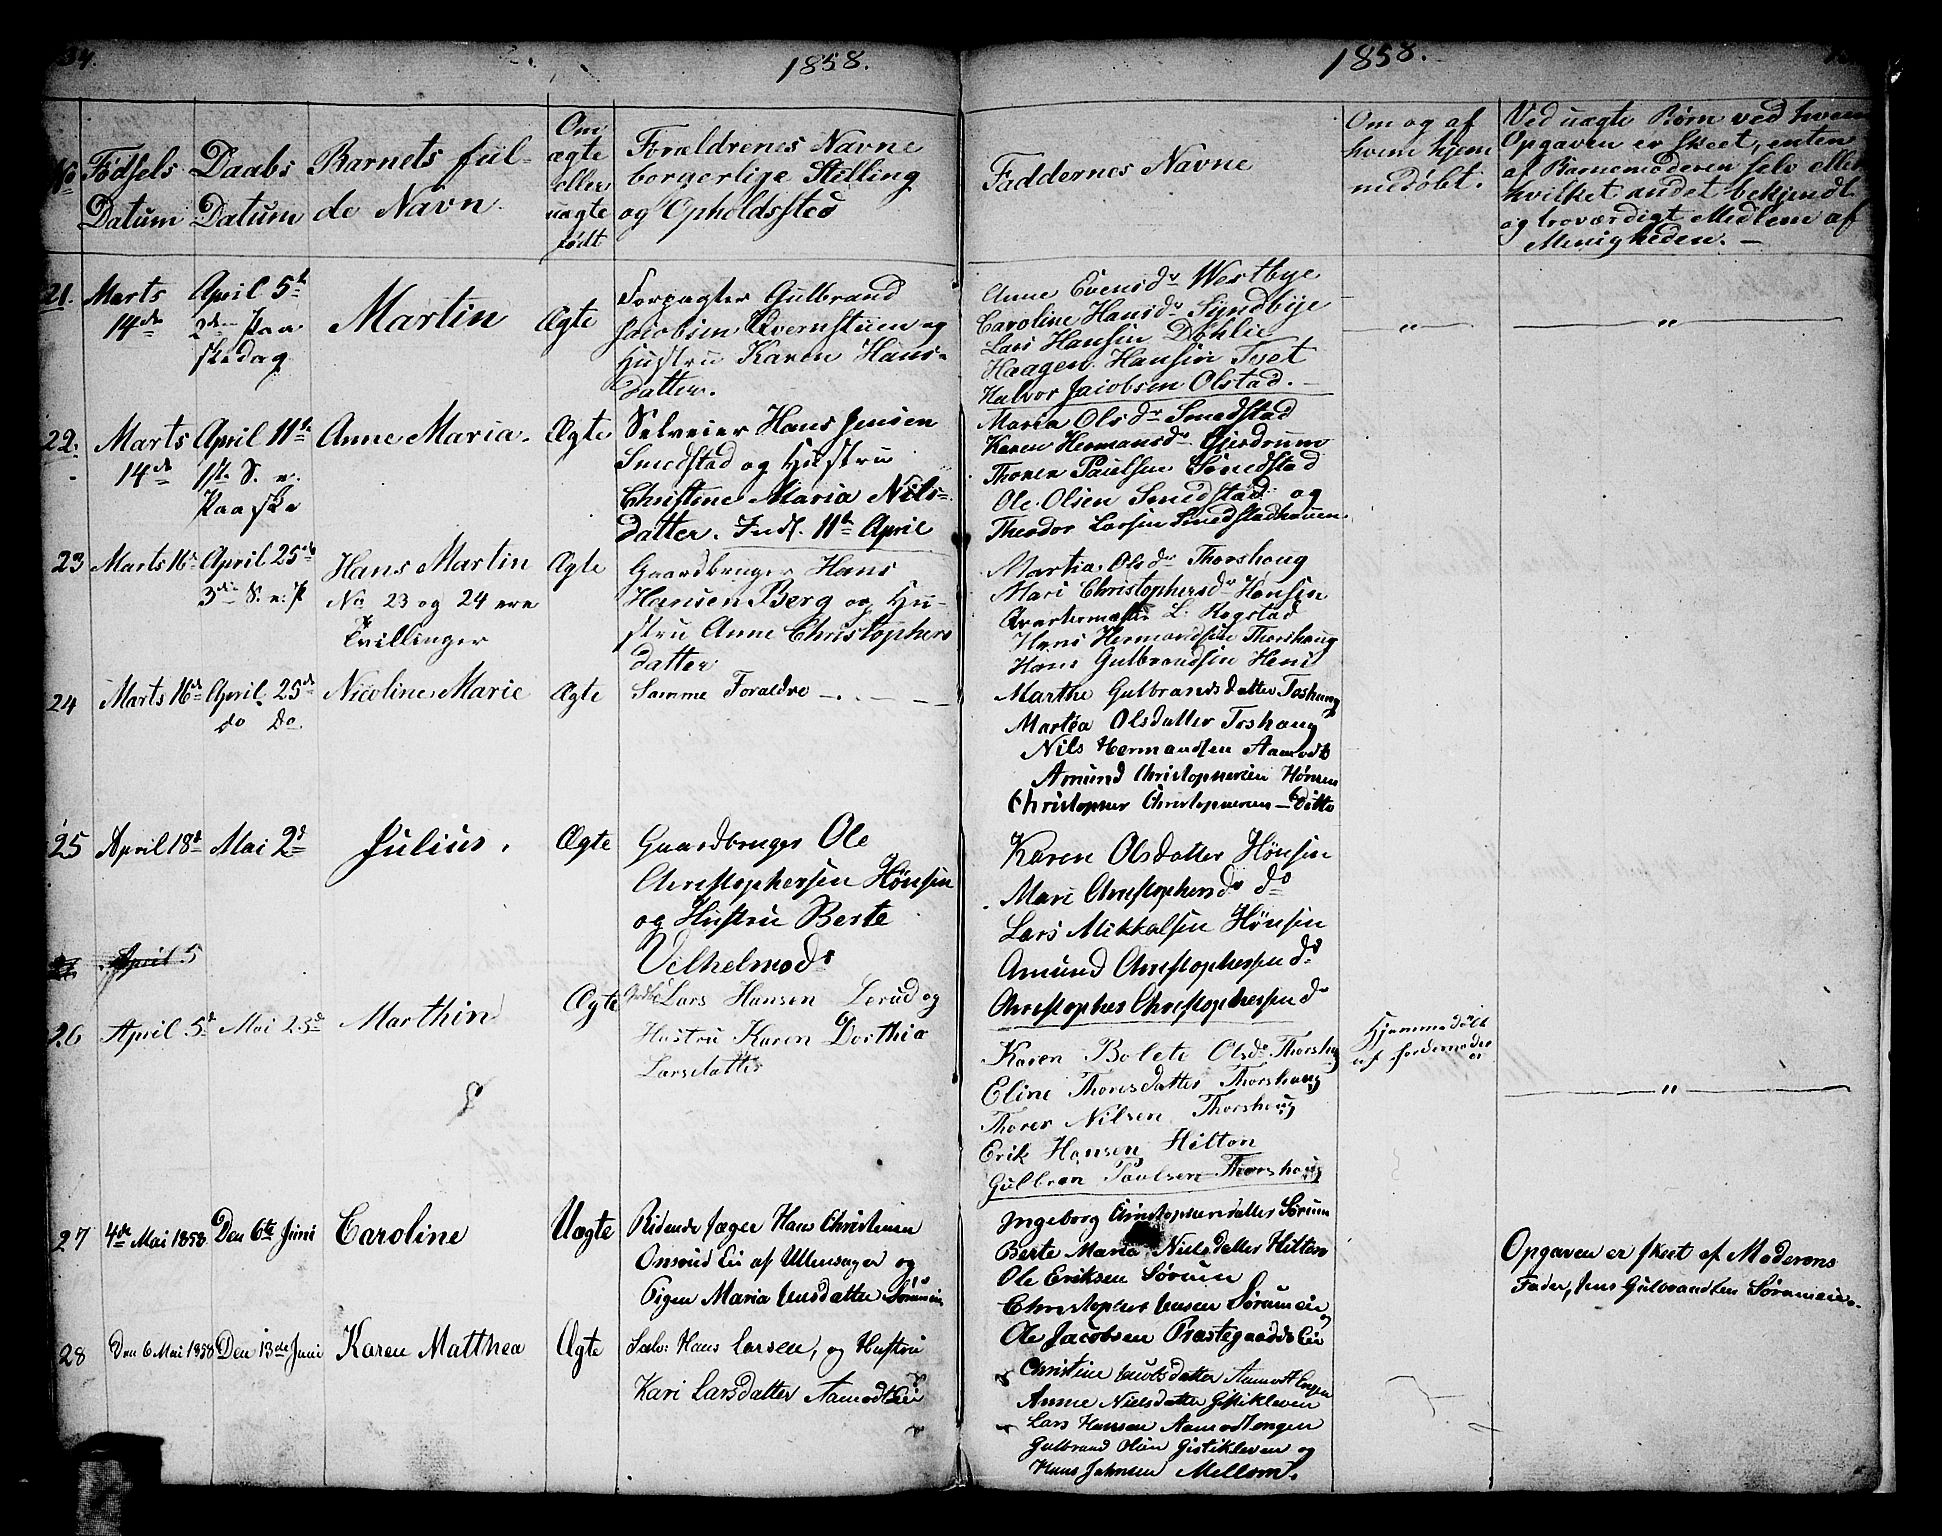 34.
1858.
No
Fødsels
Datum
Daabs
Datum
Barnets ful-
de Navn.
Om
ægte
eller
uægte
født
Forældrenes Navne
borgerlige Stilling
og Opholdssted
21.
Marts
14de
April 5te
2den Paa
skedag
Martin
Ægte
Forpagter Gulbrand
Jacobsen Qvernstuen og
Hustru Karen Hans-
datter.
22.
Marts
14de
April 11te
1ste S. e.
Paaske
Anne Maria.
Ægte
Selveier Hans Jensen
Smedstad og Hustru
Christine Maria Nils-
datter. Inds. 11te April
23
Marts 16de
April 25de
3die S. e. P
Hans Martin
No 23 og 24 ere
Tvillinger
Ægte
Gaardbruger Hans
Hansen Berg og Hu-
stru Anne Christophers
datter
24
Marts 16de
April 25de
do do
Nicoline Marie
Ægte
Samme Foraldre
25
April 18de
Mai 2d
Julius.
Ægte
Gaardbruger Ole
Christophersen Hønsin
og Hustru Berte
Vilhelmsdr
April 5
26
April 5d
Mai 23d
Marthin
Ægte
Lars Hansen Lerud og
Hustru Karen Dorthia
Larsdatter
27
4de Mai 1858
Den 6te Juni
Caroline
Uægte
Ridende Jæger Hans Christensen
Onsrud Eie af Ullensager og
Pigen Maria Jensdatter Sørumeie
28
Den 6 Mai 1858
Den 13de Juni
Karen Matthea
Ægte
Sælv: Hans Larsen, og Hustru
Kari Larsdatter Aamodt Eie
1858.
Faddernes Navne
Om og af
hvem hjem
medøbt.
Ved uægte Børn ved hvem
Opgaven er skeet, enten
af Barnemoderen selv eller
hvilket andet bekjendt
og troværdigt Medlem af
Menigheden. —
Anne Evensdr Westbye
Caroline Hansdr Syndbye
Lars Hansen Døhlie
Haagen Hansin Toset
Halvor Jacobsen Olstad. —
"
"
Maria Olsdr Smedstad
Karen Hermansdr Gjesdrum
Thorer Paulsen Smedstad
Ole Olsen Smedstad og
Theodor Larsin Smedstadhauen
Martia Olsdr Thorshoug
Mari Christophersdr Hønsin
Qvartermester L. Rogstad
Hans Hermandsen Thorshaug
Hans Gulbrandsin Heni
Marthe Gulbrandsdatter Toshaug
Martea Olsdatter Toshaug
Nils Hermandsen Aamodt
Amund Christophersen Hønsen
Christopher Christophersen — Ditto
Karen Olsdatter Hønsin
Mari Christophersdr do
Lars Mikkalsin Hønsin
Amund Christophersen do
Christopher Christophersen do
Karen Bolete Olsdr Thorshaug
Eline Thoresdatter Thorshaug
Thorer Nilsen Thorshoug
Erik Hansen Hilton
Gulbran Paulsen Thorshoug
Hjemmedøbt
af Jordemoder
"
Ingeborg Christophersdatter Sørum
Berte Maria Nielsdatter Hilton
Ole Eriksen Sørum
Christopher Jensen Sørumeie
Ole Jacobsen Præstegaardseie
Opgaven er skeet af Moderens
Fader, Jens Gulbrandsen Sørumeie.
Christine Jacobsdatter Aamodt Engen
Anne Nielsdatter Gistikleven
Lars Hansen Aamodtengen
Gulbrand Olsen Gistikleven og
Hans Johnsen Mellom.